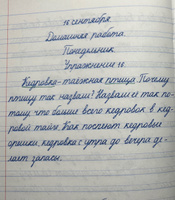 18 сентября
Домашняя работа.
Понедельник.
Упражнение 18
Кедровка-таёжная птица. Почему
птицу так назвали? Назвали её так по-
тому, что больше всего кедровок в кед-
ровой тайге. Как поспеют кедровые
орешки, кедровка с утра до вечера де-
лает запасы.